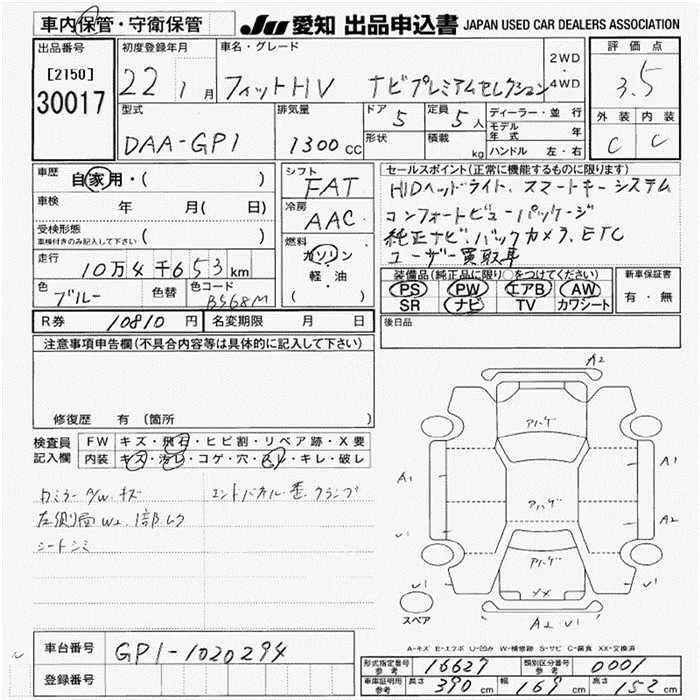 車内保管・守衛保管
JU 愛知 出品申込書 JAPAN USED CAR DEALERS ASSOCIATION
出品番号
[2150]
30017
初度登録年月
22 1月
車名・グレード
フィットHV ナビプレミアムセレクション
2WD
・
4WD
評価点
3.5
外装 内装
C C
型式
DAA-GP1
排気量
1300 CC
ドア
5
形状
定員
5人
積載
kg
ディーラー・並行
モデル年式 年
ハンドル 左・右
車歴
自家用・( )
車検 年 月( 日)
受検形態
車検付きのみ記入して下さい ( )
走行
10万4千653km
色
ブルー 色替
色コード
B568M
シフト
FAT
冷房
AAC
燃料
ガソリン
・
軽・油
( )
セールスポイント(正常に機能するものに限ります)
HIDヘッドライト、スマートキーシステム
コンフォートビューパッケージ
純正ナビ、バックカメラ、ETC
ユーザー買取車
装備品(純正品に限り○をつけてください)
PS PW エアB AW
SR ナビ TV カワシート
新車保証書
有・無
R券 10810円
名変期限 月 日
後日品
注意事項申告欄(不具合内容等は具体的に記入して下さい)
修復歴 有 〔箇所 〕
検査員
記入欄
FW キズ・飛石・ヒビ割・リペア跡・X要
内装 キズ・汚レ・コゲ・穴・スレ・キレ・破レ
カミラー P/W、キズ
エンドパネル歪、クランプ
左側面 W2、1部、レク
シートシミ
A2
アハゲ
A1
A1
アハゲ
A1
A2
アハゲ
XX
U1
U1
A2 U1
スペア
A-キズ E-エクボ U-凹み W-補修跡 S-サビ C-腐食 XX-交換済
車台番号 GP1-1020294
登録番号
形式指定番号
参考
16627
類別区分番号
参考
0001
車庫証明用
参考
長さ 390cm
幅 169cm
高さ 152cm